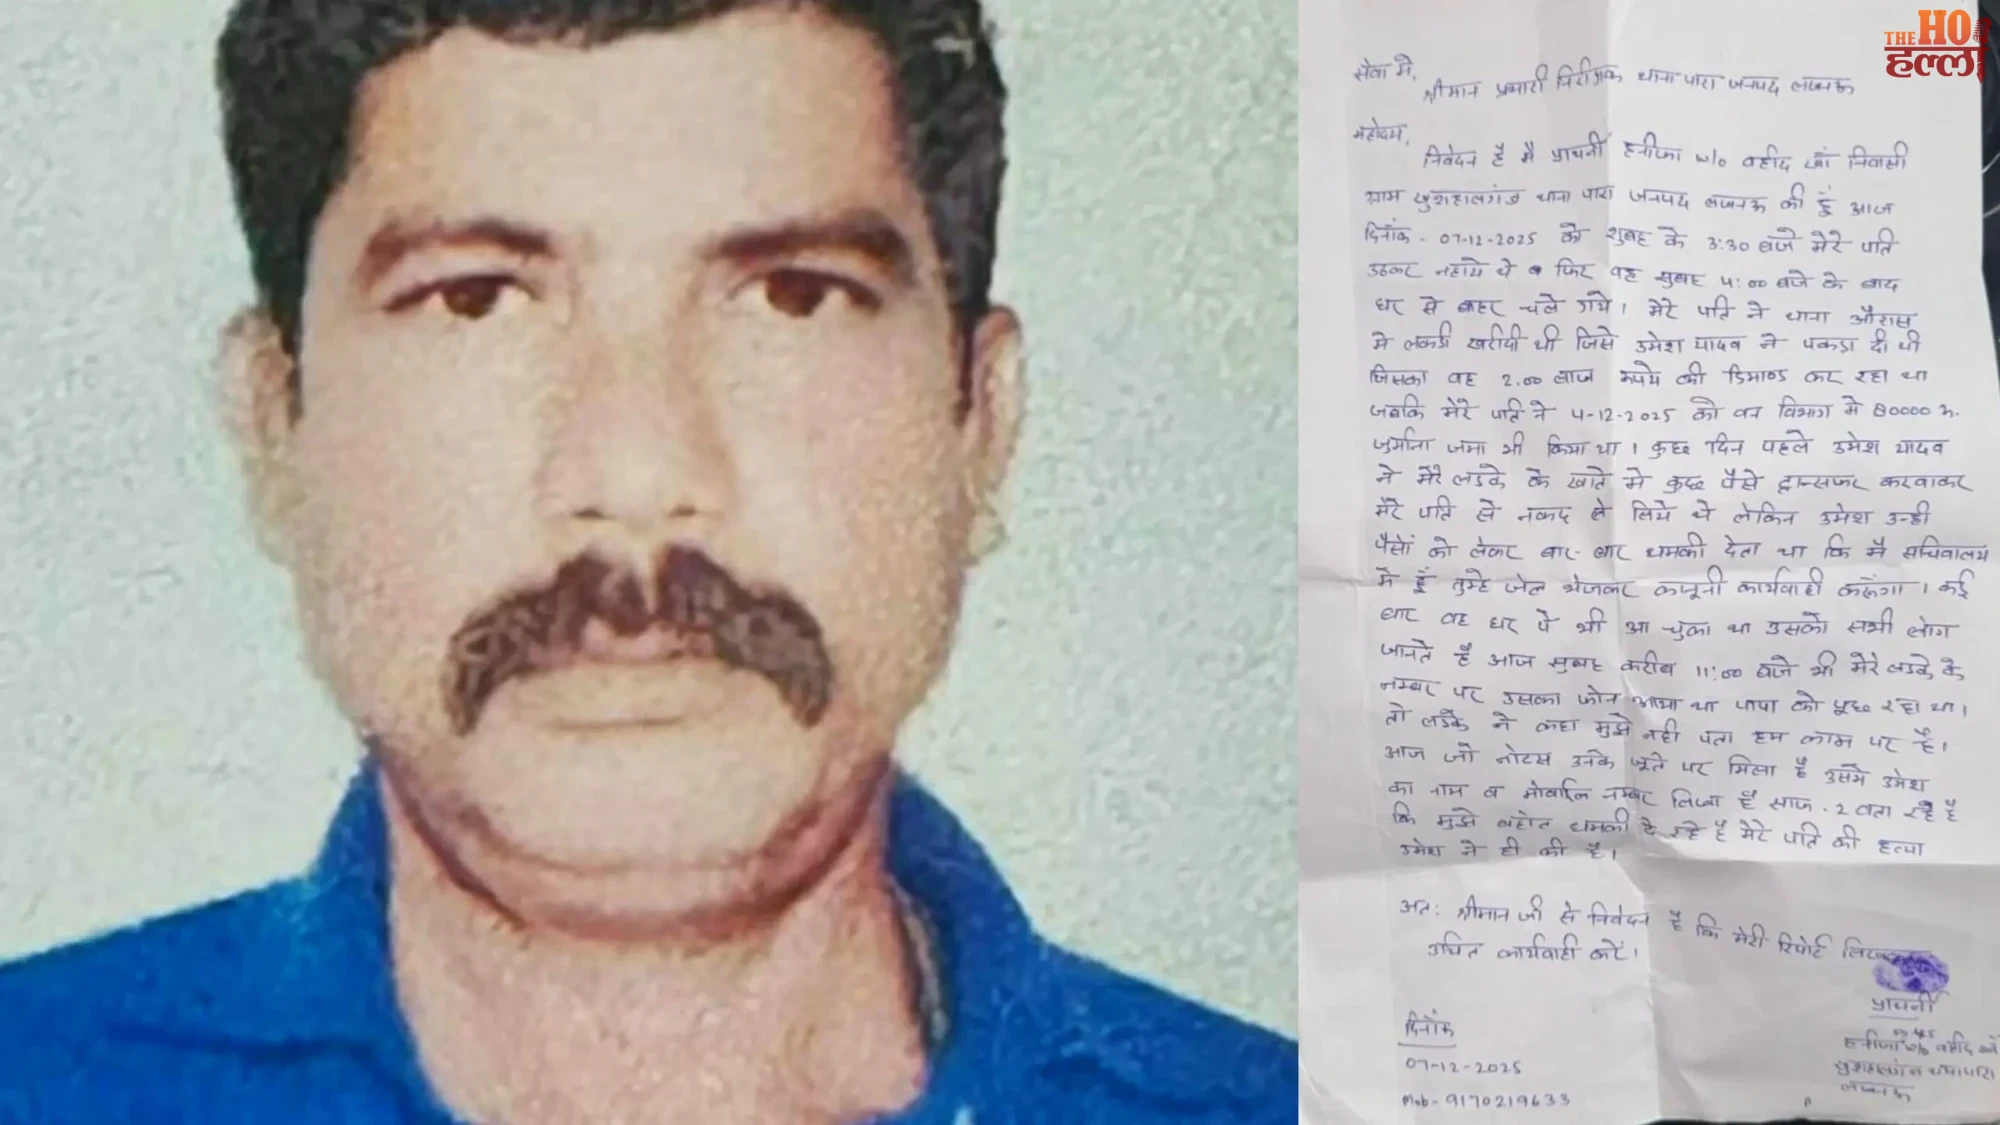 THE HO
हल्ला
सेवा में,
श्रीमान प्रभारी निरीक्षक थाना पारा जनपद लखनऊ
महोदय,
निवेदन है मै प्रार्थनी हनीफा w/o वहीद खाँ निवासी
ग्राम खुशहालगंज थाना पारा जनपद लखनऊ की हूँ आज
दिनाँक - 07-12-2025 को सुबह के 3:30 बजे मेरे पति
उठकर नहाये थे व फिर वह सुबह 4:00 बजे के बाद
घर से बाहर चले गये। मेरे पति ने थाना औरास
मे लकडी खरीदी थी जिसे उमेश यादव ने पकडा दी थी
जिसका वह 2.00 लाख रूपये की डिमाण्ड कर रहा था
जबकि मेरे पति ने 4-12-2025 को वन विभाग मे 80000 रु.
जुर्माना जमा भी किया था। कुछ दिन पहले उमेश यादव
ने मेरे लडके के खाते मे कुछ पैसे ट्रान्सफर करवाकर
मेरे पति से नकद ले लिये थे लेकिन उमेश उन्ही
पैसों को लेकर बार-बार धमकी देता था कि मै सचिवालय
मे हूँ तुम्हे जेल भेजकर कानूनी कार्यवाही करूँगा। कई
बार वह घर पे भी आ चुका था उसको सभी लोग
जानते है आज सुबह करीब 11:00 बजे भी मेरे लडके के
नम्बर पर उसका फोन आया था पापा को पूछ रहा था।
तो लडके ने कहा मुझे नही पता हम काम पर है।
आज जो नोटस उनके जूते पर मिला है उसमे उमेश
का नाम व मोबाईल नम्बर लिखा है साफ-2 बता रहे है
कि मुझे बहोत धमकी दे रहे है मेरे पति की हत्या
उमेश ने ही की है।
अत: श्रीमान जी से निवेदन है कि मेरी रिपोर्ट लिखकर
उचित कार्यवाही करें।
प्रार्थनी
दिनाँक
हनीफा w/o वहीद खाँ
07-12-2025
लखनऊ
Mob- 9170219633